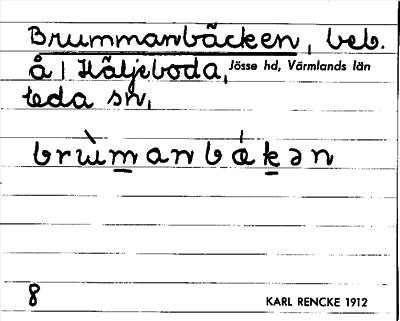 Brummanbäcken, beb.
å / Häljeboda, Jösse hd, Värmlands län
Eda sn,
brùmanbákən
8
KARL RENCKE 1912